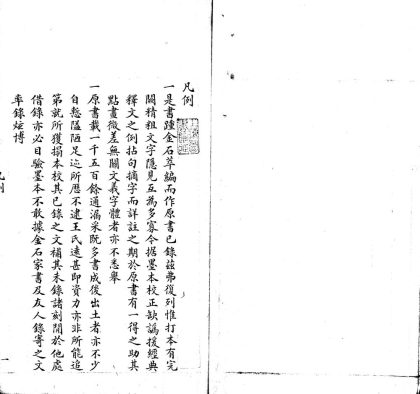 凡例
一是書踵金石萃編而作原書已錄茲弗復列惟打本有完
闕精粗文字隱見互為多寡今據墨本校正缺譌援經典
釋文之例拈句摘字而詳註之期於原書有一得之助其
點畫微差無關文義字體者亦不悉舉
一原書載一千五百餘通漏采旣多書成後出土者亦不少
自慙隘陋足迹所歷不逮王氏遠甚即資力亦非所能追
第就所獲搨本校其已錄之文補其未錄諸刻間於他處
借錄亦必目驗墨本不敢據金石家書及友人錄寄之文
率錄炫博
凡例
一